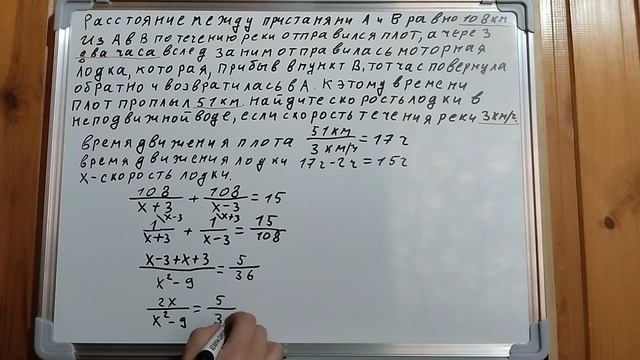 Расстояние между пристанями А и В равно 108 км
Из А в В по течению реки отправился плот, а через
два часа вслед за ним отправилась моторная
лодка, которая, прибыв в пункт В, тотчас повернула
обратно и возвратилась в А. К этому времени
плот проплыл 51 км. Найдите скорость лодки в
неподвижной воде, если скорость течения реки 3 км/ч
время движения плота 51 км / 3 км/ч = 17 ч
время движения лодки 17ч - 2ч = 15ч
х - скорость лодки.
108/(x+3) + 108/(x-3) = 15
1\x-3/(x+3) + 1\x+3/(x-3) = 15/108
(x-3+x+3)/(x²-9) = 5/36
2x/(x²-9) = 5/3